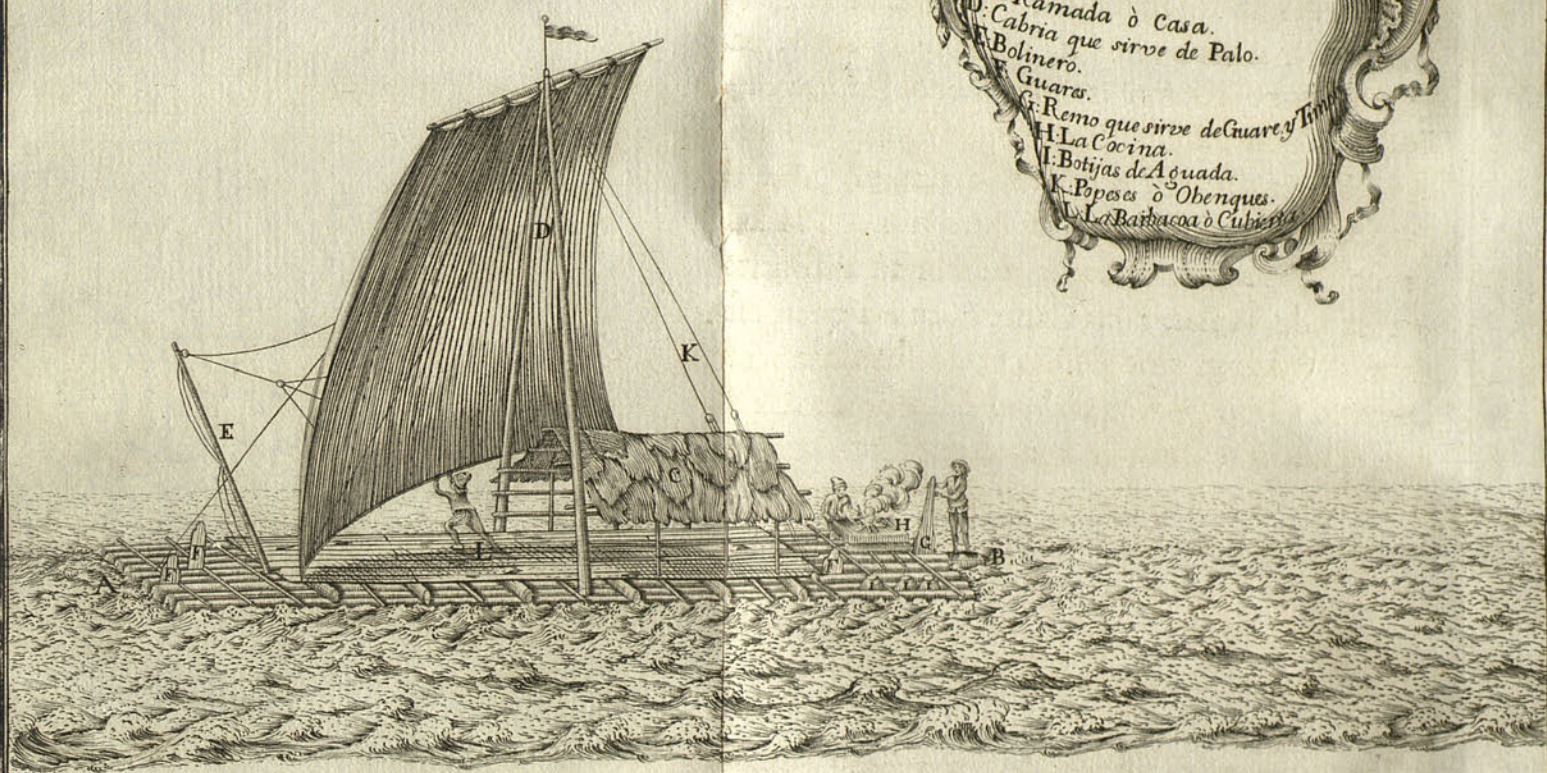 Ramada ò Casa.
D: Cabria que sirve de Palo.
E: Bolinero.
F. Guares.
G: Remo que sirve de Guare, y
H: La Cocina.
I: Botijas de Aguada.
K: Popeses ò Obenques.
L: La Barbacoa ò Cubierta
D
K
E
C
H
F
L
G
B
A
F
I I I